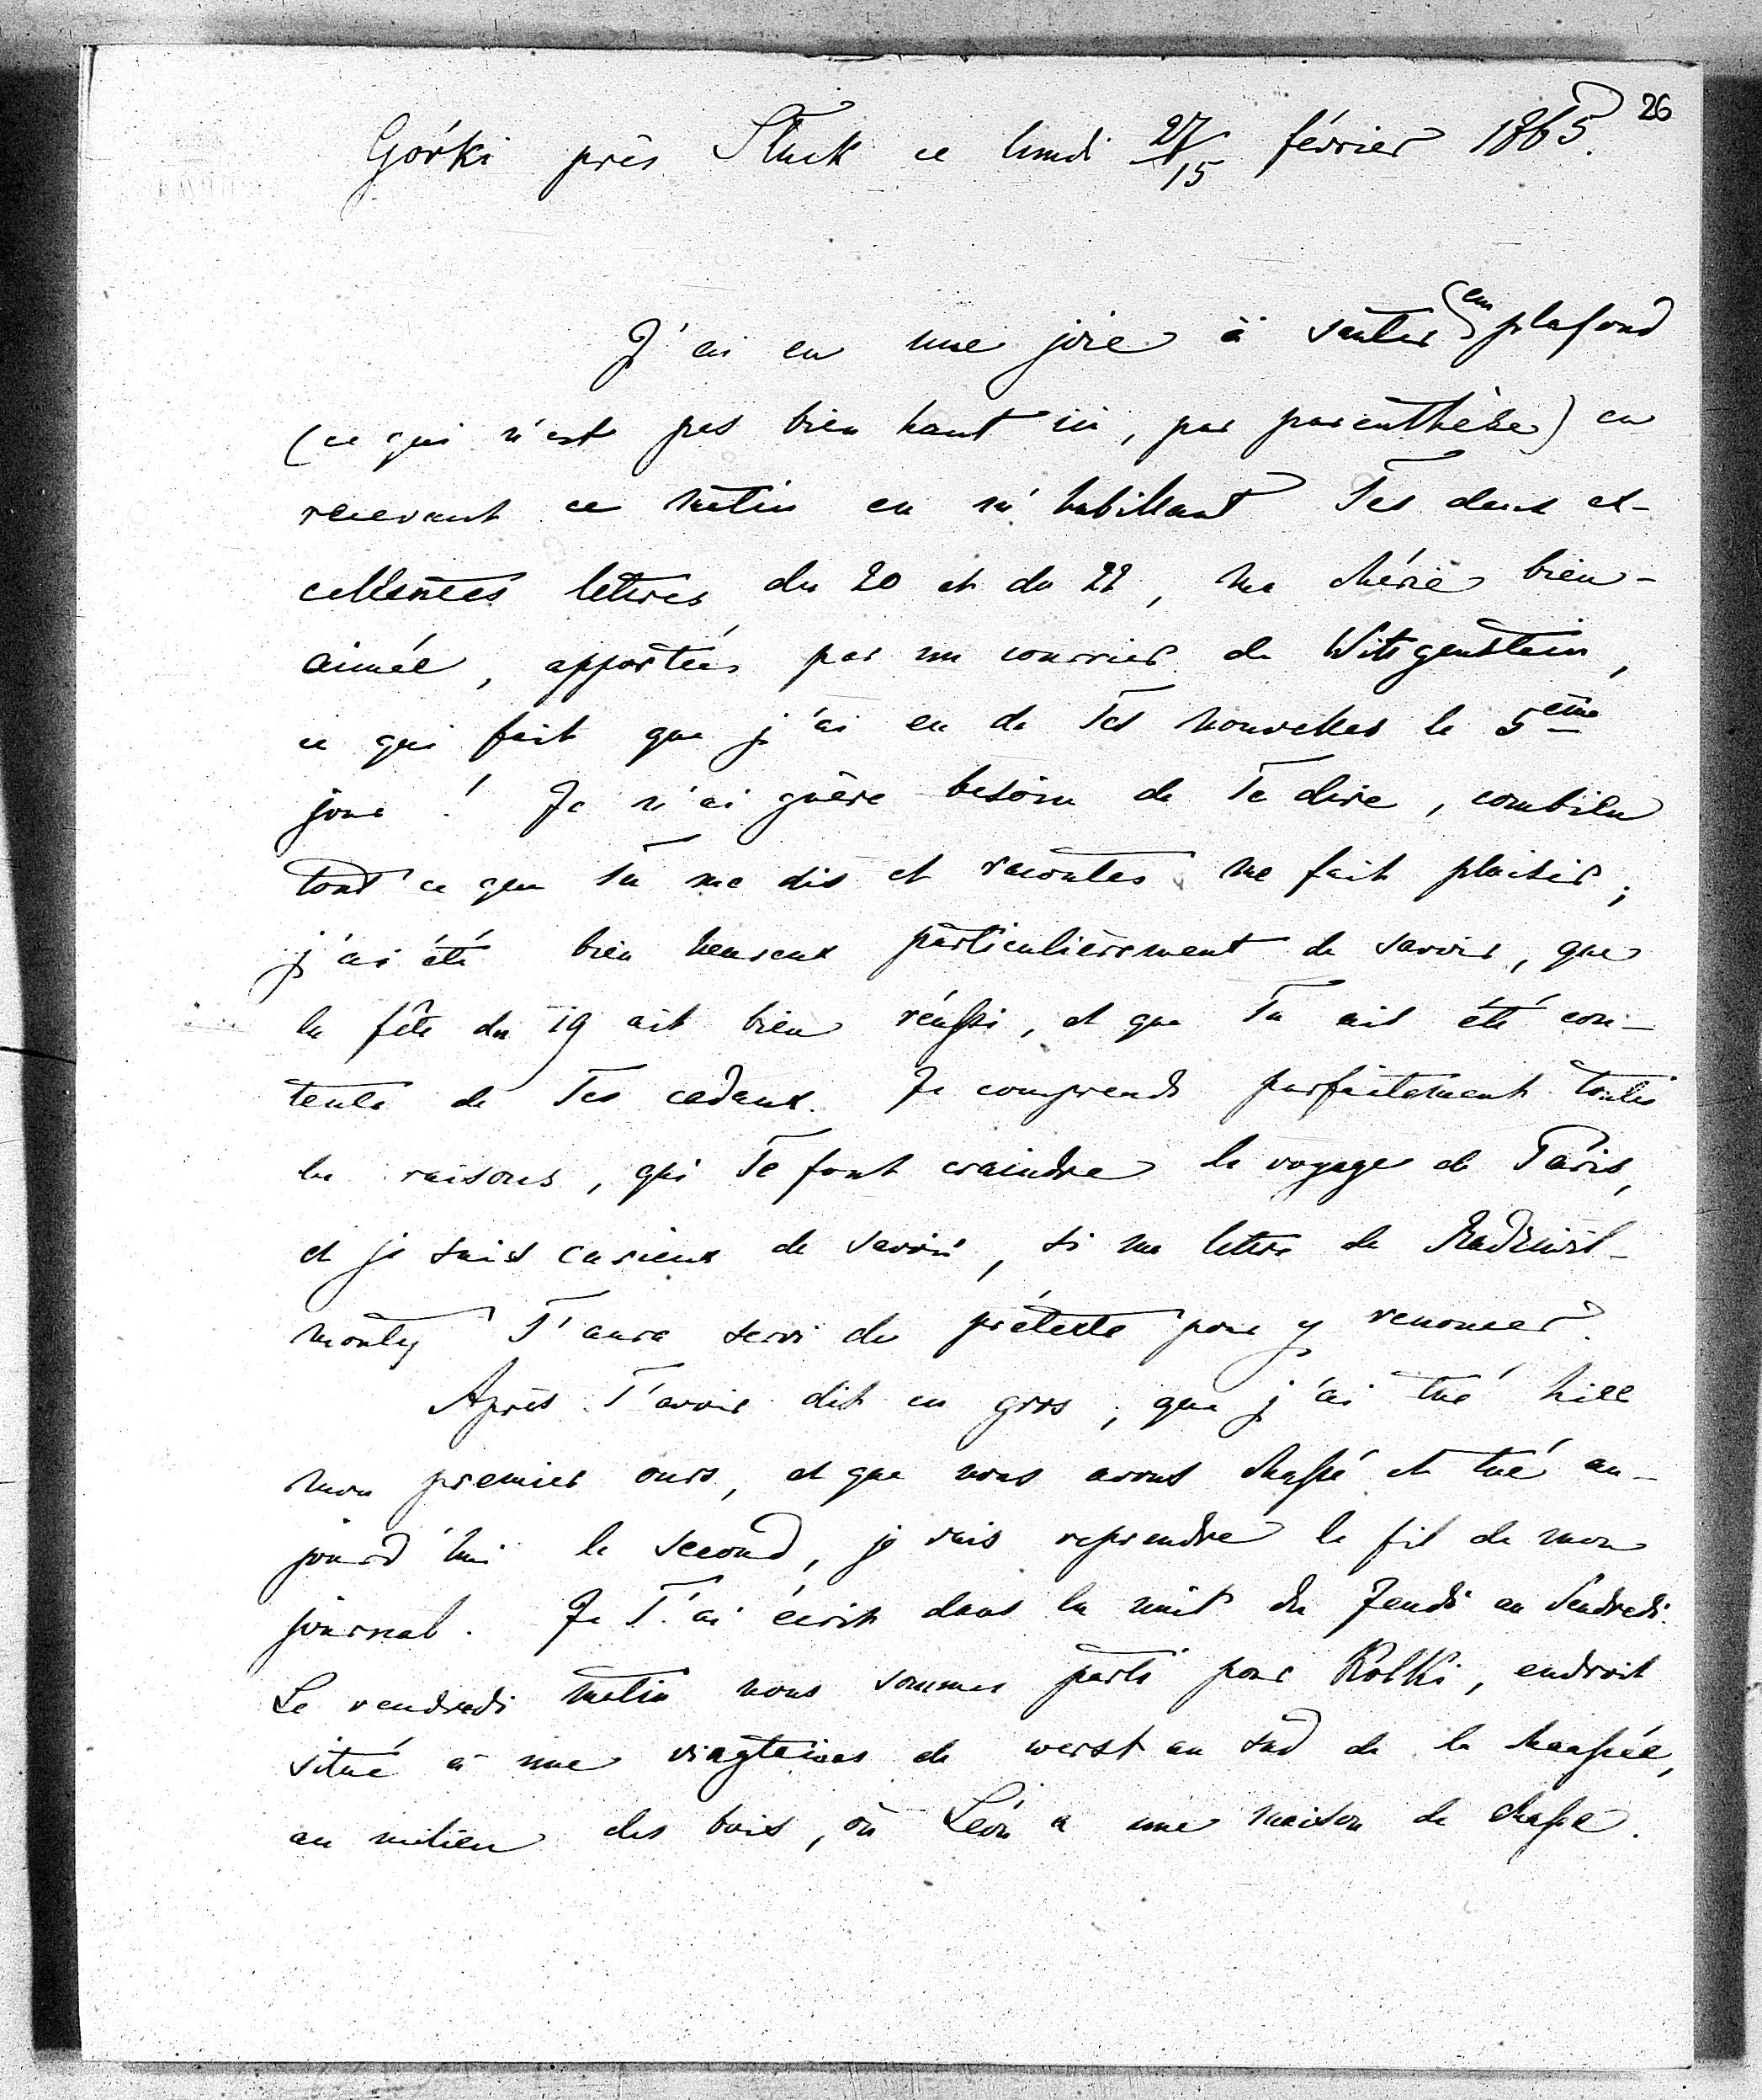 26
Górki près Sluck ce lundi 27/15 février 1865.
J'ai eu une joie à sauter au plafond
(ce qui n'est pas bien haut ici, par parenthèse) en
recevant ce matin en m'habillant Tes deux ex-
cellentes lettres du 20 et du 22, ma chérie bien-
aimée, apportées par un courrier de Wittgenstein,
ce qui fait que j'ai eu de Tes nouvelles le 5ème
jour! Je n'ai guère besoin de Te dire, combien
tout ce que Tu me dis et racontes me fait plaisir;
j'ai été bien heureux particulièrement de savoir, que
la fête du 19 ait bien réussi, et que Tu ais été con-
tente de Tes cadeaux. Je comprends parfaitement toutes
les raisons, qui Te font craindre le voyage de Paris,
et je suis curieux de savoir, si ma lettre de Radziwil-
monty T'aura servi de prétexte pour y renoncer.
Après T'avoir dit en gros, que j'ai tué hier
mon premier ours, et que nous avons chassé et tué au-
jourd'hui le second, je vais reprendre le fil de mon
journal. Je T'ai écrit dans la nuit du Jeudi au Vendredi.
Le vendredi matin nous sommes parti pour Kolki, endroit
situé à une vingtaines de werst au sud de la chaussée,
au milieu des bois, où Léon a une maison de chasse.